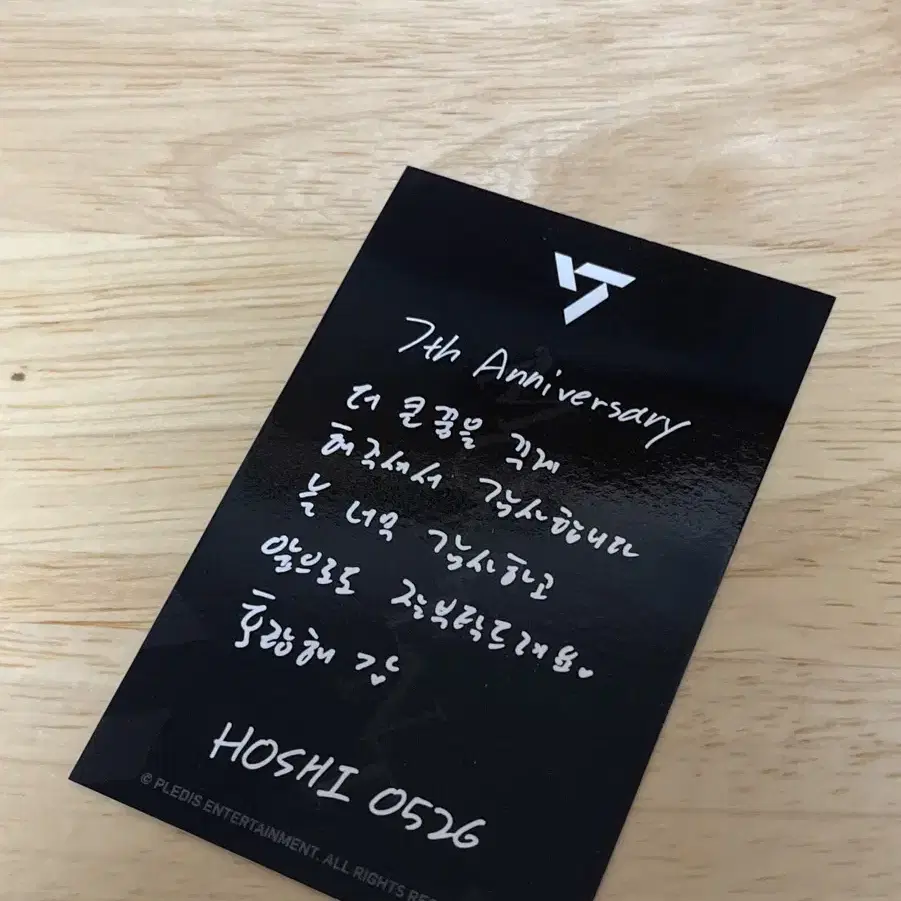 7th Anniversary
더 큰 꿈을 꾸게
해주셔서 감사합니다
늘 너무 감사하고
앞으로도 잘부탁드려요♥
호랑해 감♥
HOSHI 0526
© PLEDIS ENTERTAINMENT. ALL RIGHTS RES